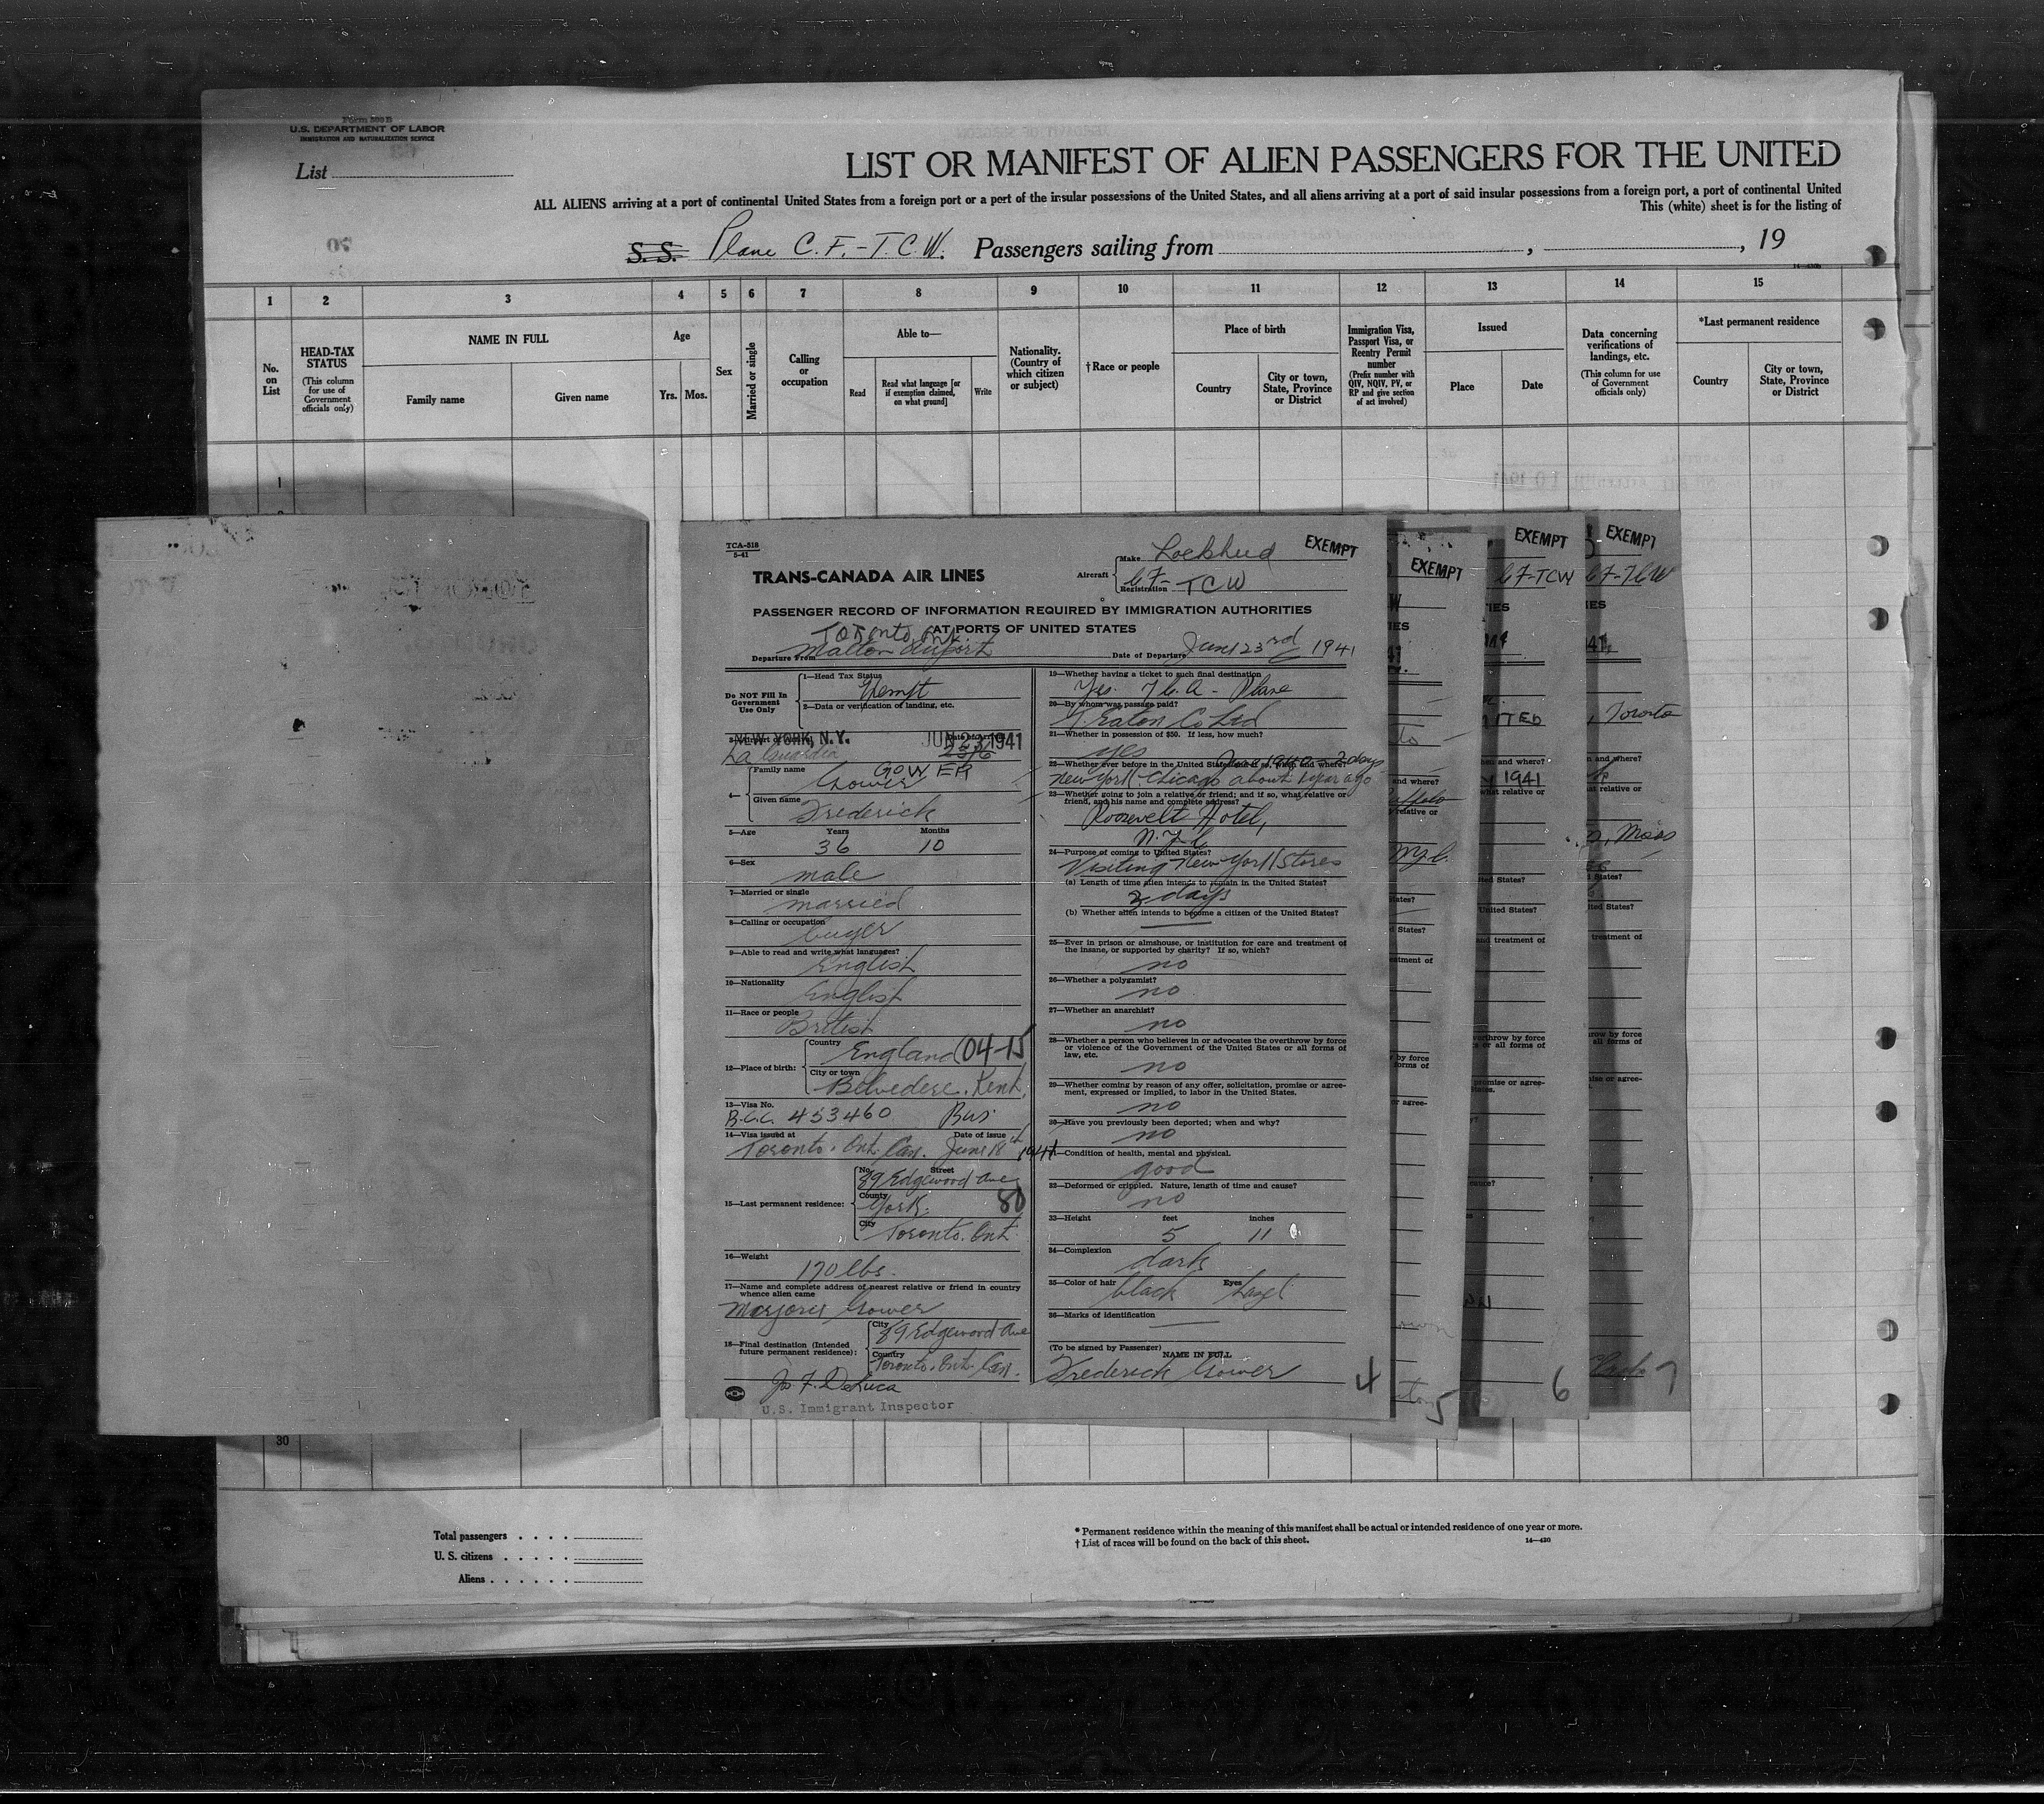 Form 500 B
U.S. DEPARTMENT OF LABOR
IMMIGRATION AND NATURALIZATION SERVICE
List
LIST OR MANIFEST OF ALIEN PASSENGERS FOR THE UNITED
ALL ALIENS arriving at a port of continental United States from a foreign port or a port of the insular possessions of the United States, and all aliens arriving at a port of said insular possessions from a foreign port, a port of continental United
This (white) sheet is for the listing of
S.S. Plane C.F.-T.C.W. Passengers sailing from , , 19
1 2 3 4 5 6 7 8 9 10 11 12 13 14 15
No. on List
HEAD-TAX STATUS
(This column for use of Government officials only)
NAME IN FULL
Family name Given name
Age
Yrs. Mos.
Sex
Married or single
Calling or occupation
Able to—
Read
Read what language [or if exemption claimed, on what ground]
Write
Nationality. (Country of which citizen or subject)
†Race or people
Place of birth
Country
City or town, State, Province or District
Immigration Visa, Passport Visa, or Reentry Permit number
(Prefix number with QIV, NQIV, PV, or RP and give section of act involved)
Issued
Place Date
Data concerning verifications of landings, etc.
(This column for use of Government officials only)
*Last permanent residence
Country
City or town, State, Province or District
1
TCA-518
5-41
TRANS-CANADA AIR LINES
Aircraft
Make Lockheed
Registration CF-TCW
EXEMPT
PASSENGER RECORD OF INFORMATION REQUIRED BY IMMIGRATION AUTHORITIES
AT PORTS OF UNITED STATES
Toronto, Ont.
Departure From Malton Airport Date of Departure June 23rd 1941
Do NOT Fill In Government Use Only
1—Head Tax Status Exempt
2—Data or verification of landing, etc.
NEW YORK, N.Y. JUN 23 1941
La Guardia 23/6
4— Family name Gower GOWER
Given name Frederick
5—Age Years 36 Months 10
6—Sex male
7—Married or single married
8—Calling or occupation buyer
9—Able to read and write what languages? English
10—Nationality English
11—Race or people British
12—Place of birth: Country England 04-15
City or town Belvedere, Kent.
13—Visa No. B.C.C. 453460 Bus.
14—Visa issued at Toronto, Ont. Can. Date of issue June 18th 1941
15—Last permanent residence: No. Street 89 Edgewood Ave
County York. 80
City Toronto. Ont.
16—Weight 170 lbs.
17—Name and complete address of nearest relative or friend in country whence alien came
Marjorie Gower
18—Final destination (Intended future permanent residence): City 89 Edgewood Ave
Country Toronto. Ont. Can.
Jos. F. DeLuca
U.S. Immigrant Inspector
19—Whether having a ticket to such final destination
Yes. T.C.A - Plane
20—By whom was passage paid?
T. Eaton Co Ltd
21—Whether in possession of $50. If less, how much?
yes
22—Whether ever before in the United States and if so, when and where?
1940 - 2 days
New York. Chicago about 1 year ago
23—Whether going to join a relative or friend; and if so, what relative or friend, and his name and complete address?
Roosevelt Hotel,
N.Y.C.
24—Purpose of coming to United States?
Visiting New York Stores
(a) Length of time alien intends to remain in the United States?
2 days
(b) Whether alien intends to become a citizen of the United States?
25—Ever in prison or almshouse, or institution for care and treatment of the insane, or supported by charity? If so, which?
no
26—Whether a polygamist?
no
27—Whether an anarchist?
no
28—Whether a person who believes in or advocates the overthrow by force or violence of the Government of the United States or all forms of law, etc.
no
29—Whether coming by reason of any offer, solicitation, promise or agreement, expressed or implied, to labor in the United States.
no
30—Have you previously been deported; when and why?
no
31—Condition of health, mental and physical.
good
32—Deformed or crippled. Nature, length of time and cause?
no
33—Height feet 5 inches 11
34—Complexion dark
35—Color of hair black Eyes hazel
36—Marks of identification
(To be signed by Passenger) NAME IN FULL
Frederick Gower
4
EXEMPT
5
EXEMPT
CF-TCW
1941
6
EXEMPT
CF-TCW
Toronto
Mass
7
30
Total passengers
U. S. citizens
Aliens
* Permanent residence within the meaning of this manifest shall be actual or intended residence of one year or more.
† List of races will be found on the back of this sheet.
14—430